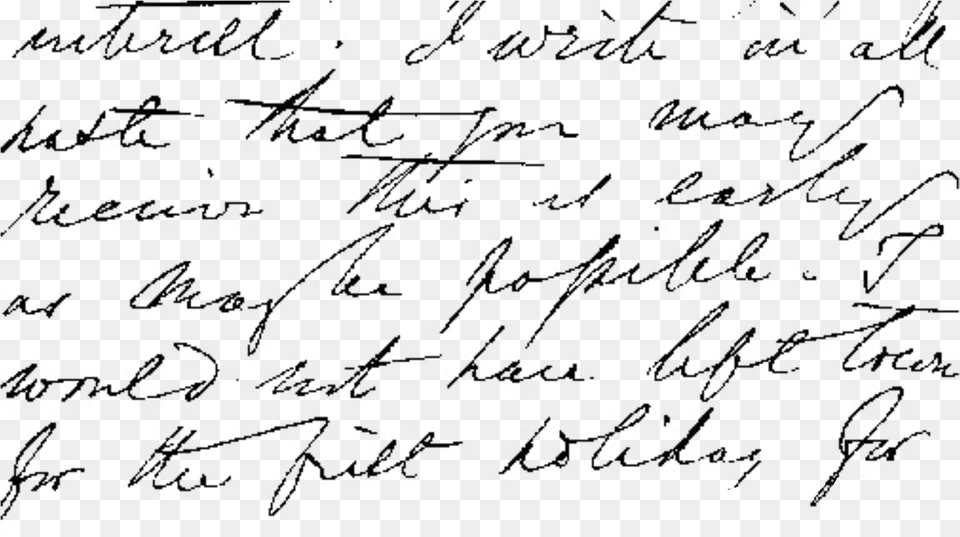 interest. I write in all
haste that you may
receive this as early
as may be possible. I
would not have left town
for the first holiday for